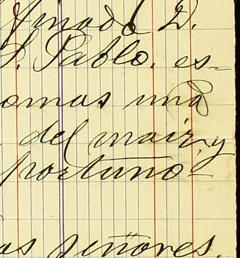 Amado D.
S. Pablo, es-
omas una
del mair y
portuno
as señores.